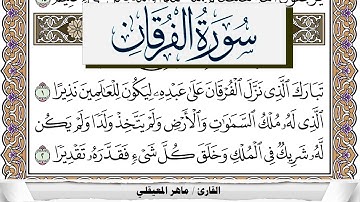 سُورَةُ الفُرْقَانِ
تَبَارَكَ ٱلَّذِى نَزَّلَ ٱلْفُرْقَانَ عَلَىٰ عَبْدِهِۦ لِيَكُونَ لِلْعَٰلَمِينَ نَذِيرًا ١
ٱلَّذِى لَهُۥ مُلْكُ ٱلسَّمَٰوَٰتِ وَٱلْأَرْضِ وَلَمْ يَتَّخِذْ وَلَدًا وَلَمْ يَكُن
لَّهُۥ شَرِيكٌ فِى ٱلْمُلْكِ وَخَلَقَ كُلَّ شَىْءٍ فَقَدَّرَهُۥ تَقْدِيرًا ٢
القارئ / ماهر المعيقلي